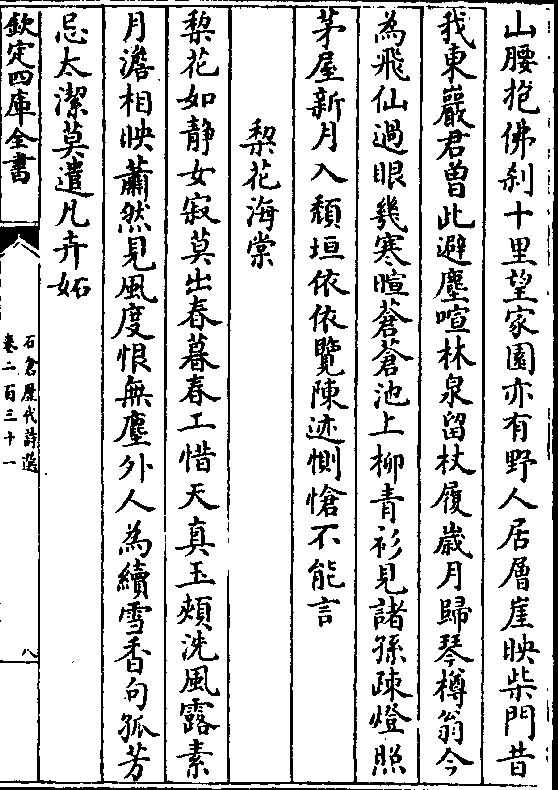 山腰抱佛刹十里望家園亦有野人居層崖映柴門昔
我東巖君曽此避塵喧林泉留杖屨歳月歸琴樽翁今
為飛仙過眼幾寒暄蒼蒼池上柳青衫見諸孫疎燈照
茅屋新月入頽垣依依覽陳迹惻愴不能言
梨花海棠
梨花如静女寂莫出春暮春工惜天真玉頰洗風露素
月澹相映蕭然見風度恨無塵外人為續雪香句孤芳
忌太潔莫遣凡卉妬
欽定四庫全書
石倉歴代詩選
卷二百三十一
八